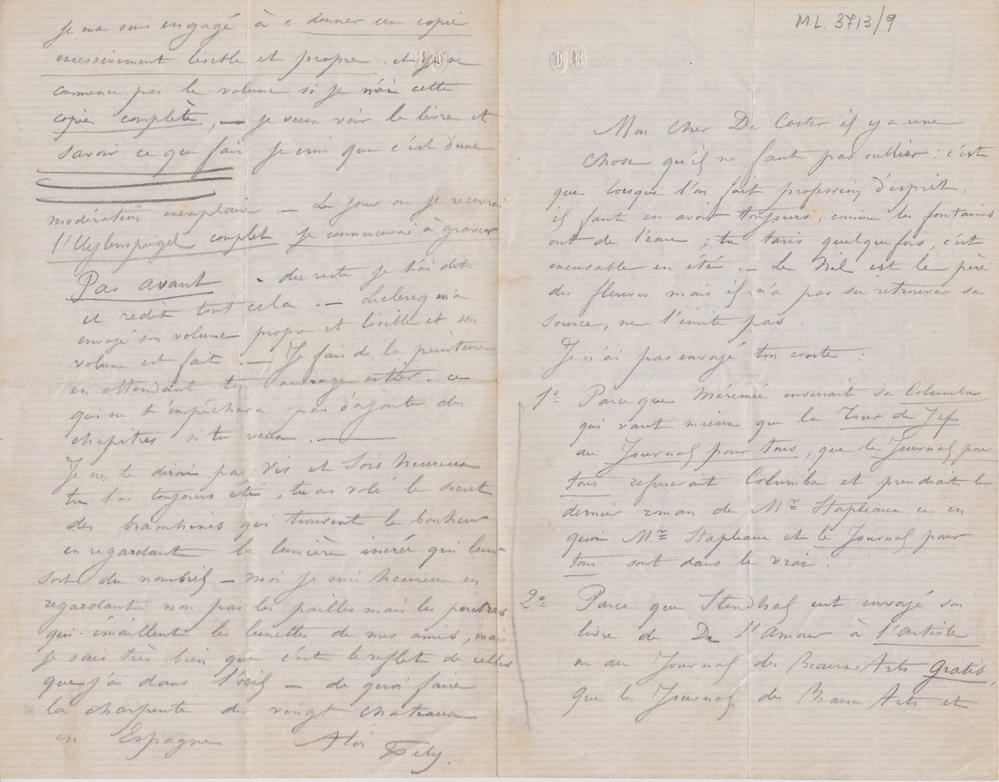 ML. 3713/9
Mon cher De Coster il y a une
chose qu'il ne faut pas oublier : c'est
que lorsque l'on fait profession d'esprit,
il faut en avoir toujours, comme les fontaines
ont de l'eau ; tu taris quelquefois, c'est
excusable en été. — Le Nil est le père
des fleuves mais il n'a pas su retrouver sa
source, ne l'imite pas.
Je n'ai pas envoyé ton conte :
1º Parce que Mérimée enverrait sa Columba
qui vaut mieux que la de Jef
au Journal pour tous, que le Journal pour
tous refuserait Columba et prendrait le
dernier roman de Mr Stapleaux ce en
quoi Mr Stapleaux et le Journal pour
tous sont dans le vrai.
2º Parce que Stendhal eut envoyé son
livre de De L'Amour à l'artiste
ou au Journal des Beaux Arts gratis,
que le Journal des Beaux Arts et
Je me suis engagé à donner une copie
excessivement lisible et propre et je ne
commence pas le volume si je n'ai cette
copie complète, — je veux voir le livre et
savoir ce que fais je crois que c'est d'une
modération exemplaire. — Le jour où je recevrai
l'Uylenspiegel complet je commencerai à graver
Pas avant. du reste je t'ai dit
et redit tout cela. — Leclercq m'a
envoyé son volume propre et lisible et son
volume est fait. — Je fais de la peinture
en attendant ton ouvrage entier. ce
qui ne t'empêchera pas d'ajouter des
chapitres si tu veux. —
Je ne te dirai pas: Vis et Sois heureux
tu l'as toujours été, tu as volé le secret
des brahmines qui trouvent le bonheur
en regardant la lumière incréée qui leur
sort du nombril — moi je suis heureux en
regardant non pas les pailles mais les poutres
qui émaillent les lunettes de mes amis, mais
je sais très bien que c'est le reflet de celles
que j'ai dans l'œil — de quoi faire
la charpente de vingt chateaux
en Espagne. A toi Fély.